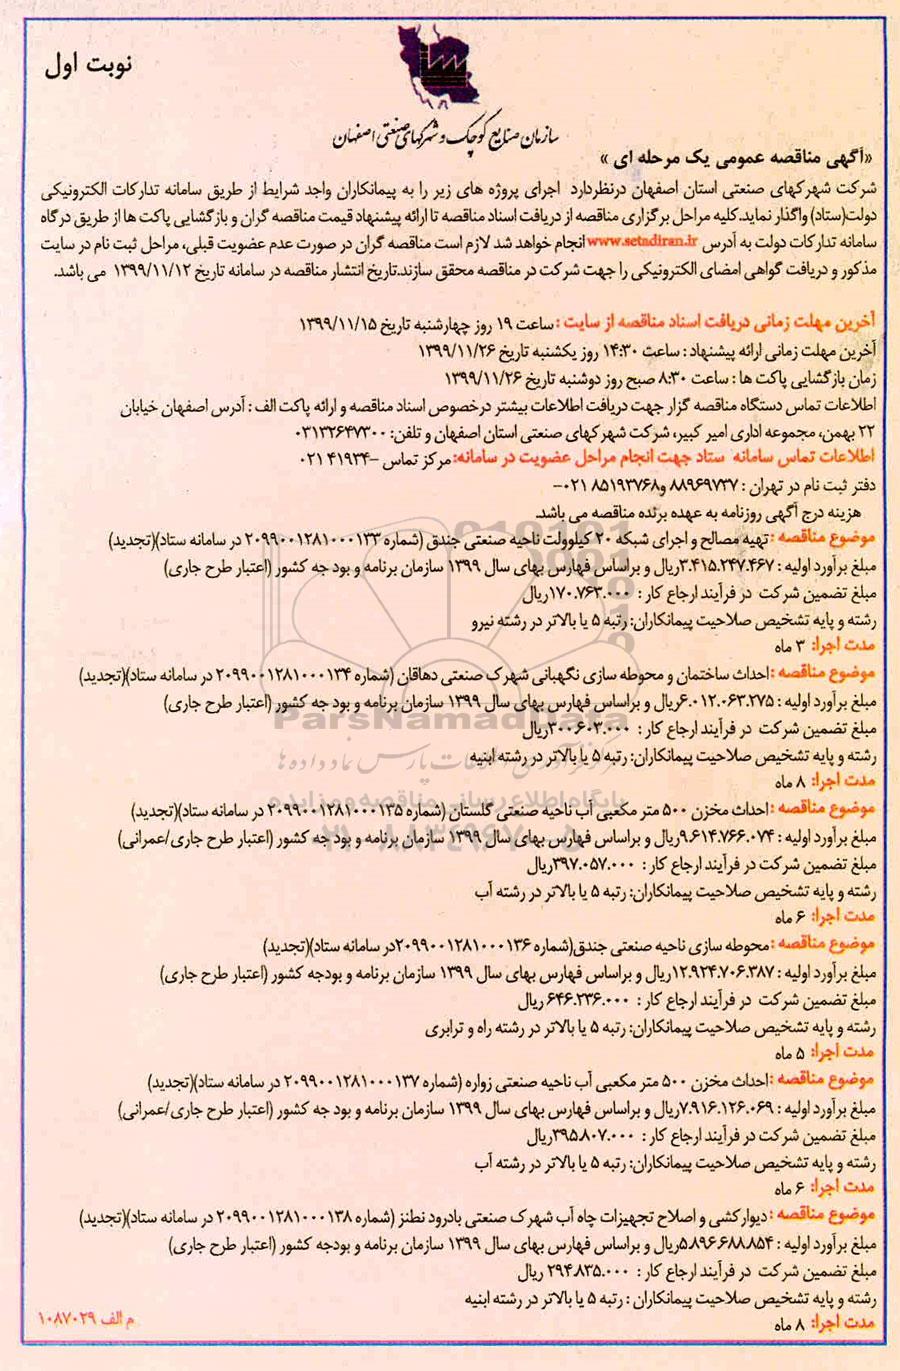 نوبت اول
سازمان صنایع کوچک و شهرکهای صنعتی اصفهان
«آگهی مناقصه عمومی یک مرحله ای »
شرکت شهرکهای صنعتی استان اصفهان درنظردارد اجرای پروژه های زیر را به پیمانکاران واجد شرایط از طریق سامانه تدارکات الکترونیکی
دولت(ستاد) واگذار نماید.کلیه مراحل برگزاری مناقصه از دریافت اسناد مناقصه تا ارائه پیشنهاد قیمت مناقصه گران و بازگشایی پاکت ها از طریق درگاه
سامانه تدارکات دولت به آدرس www.setadiran.ir انجام خواهد شد لازم است مناقصه گران در صورت عدم عضویت قبلی، مراحل ثبت نام در سایت
مذکور و دریافت گواهی امضای الکترونیکی را جهت شرکت در مناقصه محقق سازند.تاریخ انتشار مناقصه در سامانه تاریخ ۱۳۹۹/۱۱/۱۲ می باشد.
آخرین مهلت زمانی دریافت اسناد مناقصه از سایت : ساعت ۱۹ روز چهارشنبه تاریخ ۱۳۹۹/۱۱/۱۵
آخرین مهلت زمانی ارائه پیشنهاد : ساعت ۱۴:۳۰ روز یکشنبه تاریخ ۱۳۹۹/۱۱/۲۶
زمان بازگشایی پاکت ها : ساعت ۸:۳۰ صبح روز دوشنبه تاریخ ۱۳۹۹/۱۱/۲۶
اطلاعات تماس دستگاه مناقصه گزار جهت دریافت اطلاعات بیشتر درخصوص اسناد مناقصه و ارائه پاکت الف : آدرس اصفهان خیابان
۲۲ بهمن، مجموعه اداری امیر کبیر، شرکت شهرکهای صنعتی استان اصفهان و تلفن: ۰۳۱۳۲۶۴۷۳۰۰
اطلاعات تماس سامانه ستاد جهت انجام مراحل عضویت در سامانه: مرکز تماس –۴۱۹۳۴ ۰۲۱
دفتر ثبت نام در تهران : ۸۸۹۶۹۷۳۷ و۸۵۱۹۳۷۶۸ ۰۲۱–
هزینه درج آگهی روزنامه به عهده برنده مناقصه می باشد.
موضوع مناقصه : تهیه مصالح و اجرای شبکه ۲۰ کیلوولت ناحیه صنعتی جندق (شماره ۲۰۹۹۰۰۱۲۸۱۰۰۰۱۳۳ در سامانه ستاد)(تجدید)
مبلغ برآورد اولیه : ۳.۴۱۵.۲۴۷.۴۶۷ریال و براساس فهارس بهای سال ۱۳۹۹ سازمان برنامه و بود جه کشور (اعتبار طرح جاری)
مبلغ تضمین شرکت در فرآیند ارجاع کار : ۱۷۰.۷۶۳.۰۰۰ریال
رشته و پایه تشخیص صلاحیت پیمانکاران: رتبه ۵ یا بالاتر در رشته نیرو
مدت اجرا: ۳ ماه
موضوع مناقصه : احداث ساختمان و محوطه سازی نگهبانی شهرک صنعتی دهاقان (شماره ۲۰۹۹۰۰۱۲۸۱۰۰۰۱۳۴ در سامانه ستاد)(تجدید)
مبلغ برآورد اولیه : ۶.۰۱۲.۰۶۳.۲۷۵ریال و براساس فهارس بهای سال ۱۳۹۹ سازمان برنامه و بود جه کشور (اعتبار طرح جاری)
مبلغ تضمین شرکت در فرآیند ارجاع کار : ۳۰۰.۶۰۳.۰۰۰ریال
رشته و پایه تشخیص صلاحیت پیمانکاران: رتبه ۵ یا بالاتر در رشته ابنیه
مدت اجرا: ۸ ماه
موضوع مناقصه : احداث مخزن ۵۰۰ متر مکعبی آب ناحیه صنعتی گلستان (شماره ۲۰۹۹۰۰۱۲۸۱۰۰۰۱۳۵ در سامانه ستاد)(تجدید)
مبلغ برآورد اولیه : ۹.۶۱۴.۷۶۶.۰۷۴ریال و براساس فهارس بهای سال ۱۳۹۹ سازمان برنامه و بود جه کشور (اعتبار طرح جاری/عمرانی)
مبلغ تضمین شرکت در فرآیند ارجاع کار : ۳۹۷.۰۵۷.۰۰۰ریال
رشته و پایه تشخیص صلاحیت پیمانکاران: رتبه ۵ یا بالاتر در رشته آب
مدت اجرا: ۶ ماه
موضوع مناقصه : محوطه سازی ناحیه صنعتی جندق(شماره ۲۰۹۹۰۰۱۲۸۱۰۰۰۱۳۶در سامانه ستاد)(تجدید)
مبلغ برآورد اولیه : ۱۲.۹۲۴.۷۰۶.۳۸۷ریال و براساس فهارس بهای سال ۱۳۹۹ سازمان برنامه و بودجه کشور (اعتبار طرح جاری)
مبلغ تضمین شرکت در فرآیند ارجاع کار : ۶۴۶.۲۳۶.۰۰۰ ریال
رشته و پایه تشخیص صلاحیت پیمانکاران: رتبه ۵ یا بالاتر در رشته راه و ترابری
مدت اجرا: ۵ ماه
موضوع مناقصه : احداث مخزن ۵۰۰ متر مکعبی آب ناحیه صنعتی زواره (شماره ۲۰۹۹۰۰۱۲۸۱۰۰۰۱۳۷ در سامانه ستاد)(تجدید)
مبلغ برآورد اولیه : ۷.۹۱۶.۱۲۶.۰۶۹ریال و براساس فهارس بهای سال ۱۳۹۹ سازمان برنامه و بود جه کشور (اعتبار طرح جاری/عمرانی)
مبلغ تضمین شرکت در فرآیند ارجاع کار : ۳۹۵.۸۰۷.۰۰۰ریال
رشته و پایه تشخیص صلاحیت پیمانکاران: رتبه ۵ یا بالاتر در رشته آب
مدت اجرا: ۶ ماه
موضوع مناقصه : دیوارکشی و اصلاح تجهیزات چاه آب شهرک صنعتی بادرود نطنز (شماره ۲۰۹۹۰۰۱۲۸۱۰۰۰۱۳۸ در سامانه ستاد)(تجدید)
مبلغ برآورد اولیه : ۵.۸۹۶.۶۸۸.۸۵۴ریال و براساس فهارس بهای سال ۱۳۹۹ سازمان برنامه و بودجه کشور (اعتبار طرح جاری)
مبلغ تضمین شرکت در فرآیند ارجاع کار : ۲۹۴.۸۳۵.۰۰۰ ریال
رشته و پایه تشخیص صلاحیت پیمانکاران : رتبه ۵ یا بالاتر در رشته ابنیه
مدت اجرا: ۸ ماه
م الف ۱۰۸۷۰۲۹
ParsNamadData
پایگاه اطلاع رسانی مناقصه و مزایده